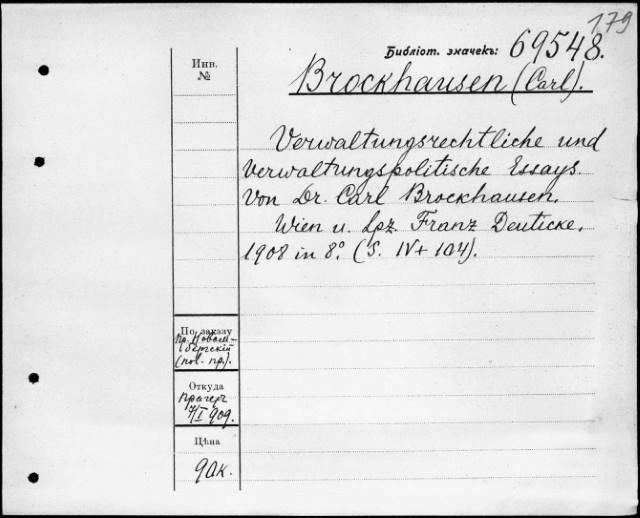 179
Библіот. значекъ: 69548.
Инв.
№
Brockhausen (Carl).
Verwaltungsrechtliche und
verwaltungspolitische Essays.
Von Dr. Carl Brockhausen.
Wien u. Lpz. Franz Deuticke,
1908 in 8º. (S. IV + 104).
По заказу
пр. Новом-
бергскій
(пол. пр.).
Откуда
Прагеръ
7/I 909.
Цѣна
90 к.